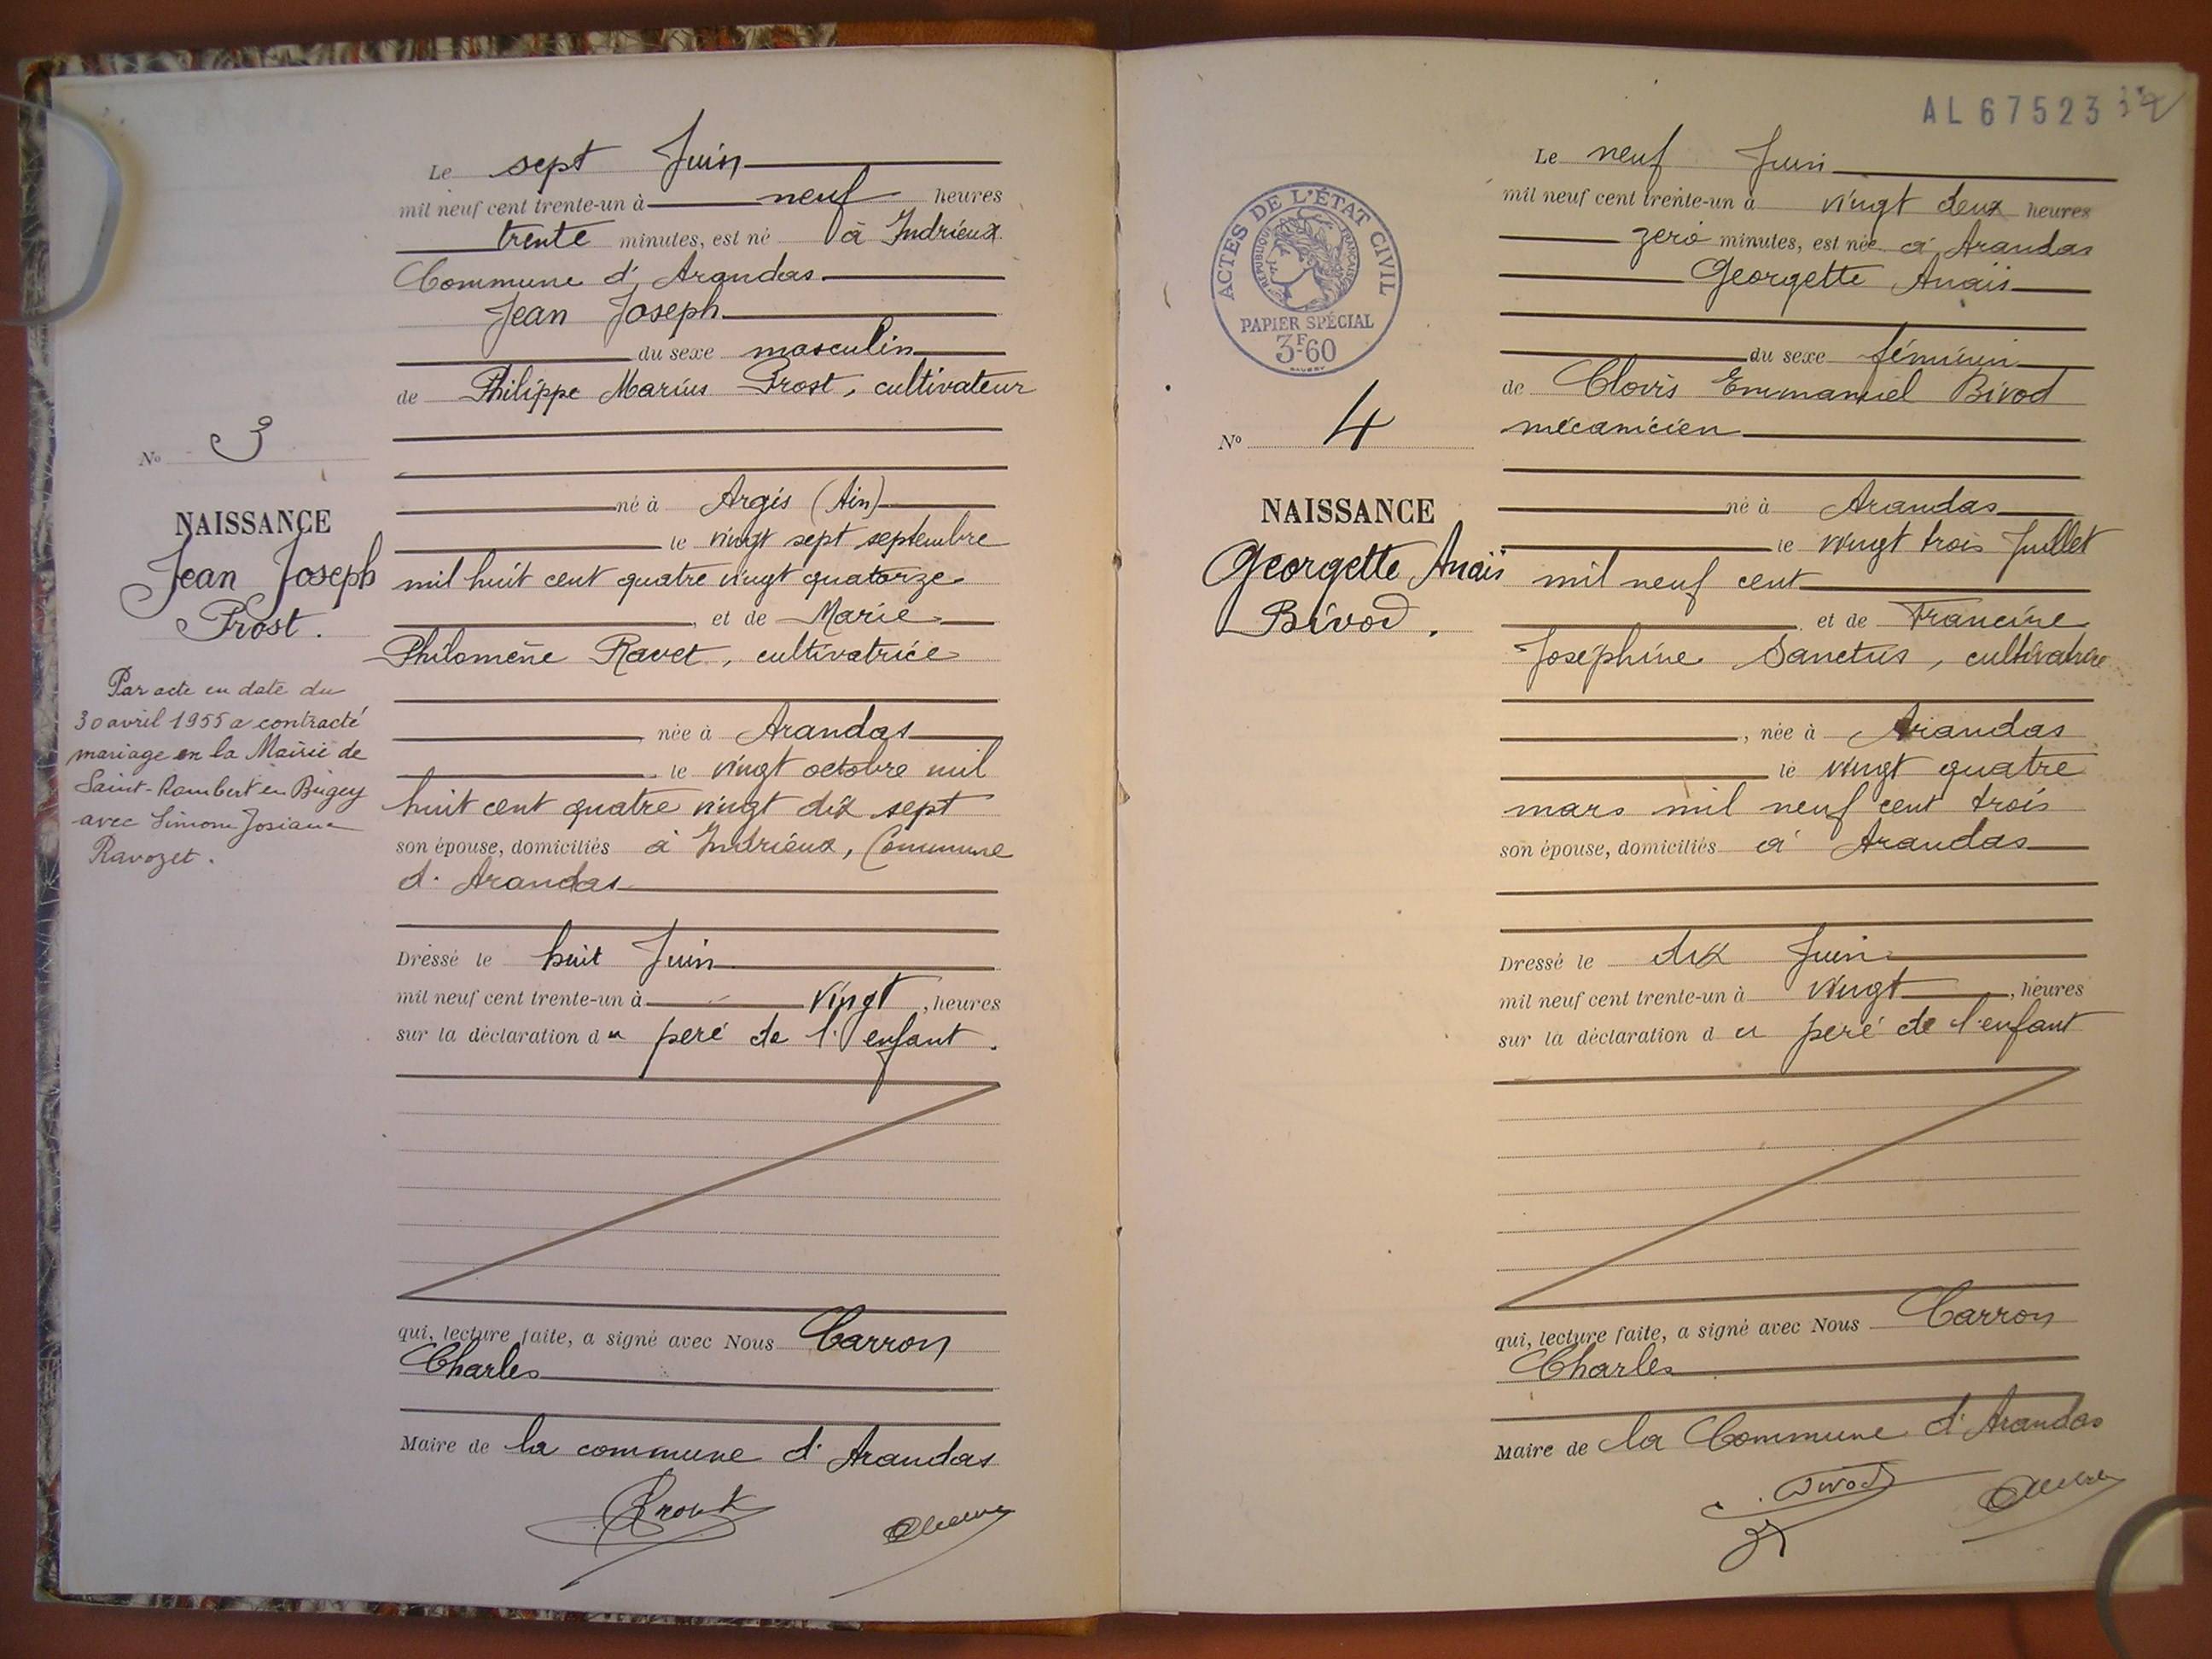 Le sept Juin
mil neuf cent trente-un à neuf heures
trente minutes, est né à Indrieux
Commune d'Arandas
Jean Joseph
du sexe masculin
de Philippe Marius Prost, cultivateur
né à Argis (Ain)
le vingt sept septembre
mil huit cent quatre vingt quatorze
, et de Marie
Philomène Ravet, cultivatrice
, née à Arandas
, le vingt octobre mil
huit cent quatre vingt dix sept
son épouse, domiciliés à Indrieux, Commune
d'Arandas
Dressé le huit Juin
mil neuf cent trente-un à vingt, heures
sur la déclaration du père de l'enfant.
qui, lecture faite, a signé avec Nous Carron
Charles
Maire de la commune d'Arandas
No 3
NAISSANCE
Jean Joseph
Prost.
Par acte en date du
30 avril 1955 a contracté
mariage en la Mairie de
Saint-Rambert en Bugey
avec Simone Josiane
Ravozet.
AL 67523
Le neuf Juin
mil neuf cent trente-un à vingt deux heures
zéro minutes, est née à Arandas
Georgette Anaïs
du sexe féminin
de Clovis Emmanuel Bivod
mécanicien
né à Arandas
le vingt trois Juillet
mil neuf cent
, et de Francine
Joséphine Sanctus, cultivatrice
, née à Arandas
le vingt quatre
mars mil neuf cent trois
son épouse, domiciliés à Arandas
Dressé le dix Juin
mil neuf cent trente-un à vingt, heures
sur la déclaration du père de l'enfant
qui, lecture faite, a signé avec Nous Carron
Charles
Maire de la Commune d'Arandas
Bivod
ACTES DE L'ÉTAT CIVIL
RÉPUBLIQUE FRANÇAISE
PAPIER SPÉCIAL
3F60
No 4
NAISSANCE
Georgette Anaïs
Bivod.